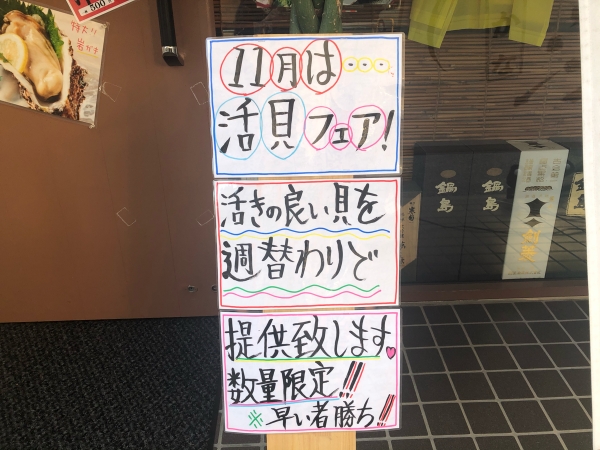 特大!!
岩がき
11月は...
活貝フェア!
活きの良い貝を
週替わりで
提供致します。
数量限定!!
※早い者勝ち!!
鍋島
鍋島